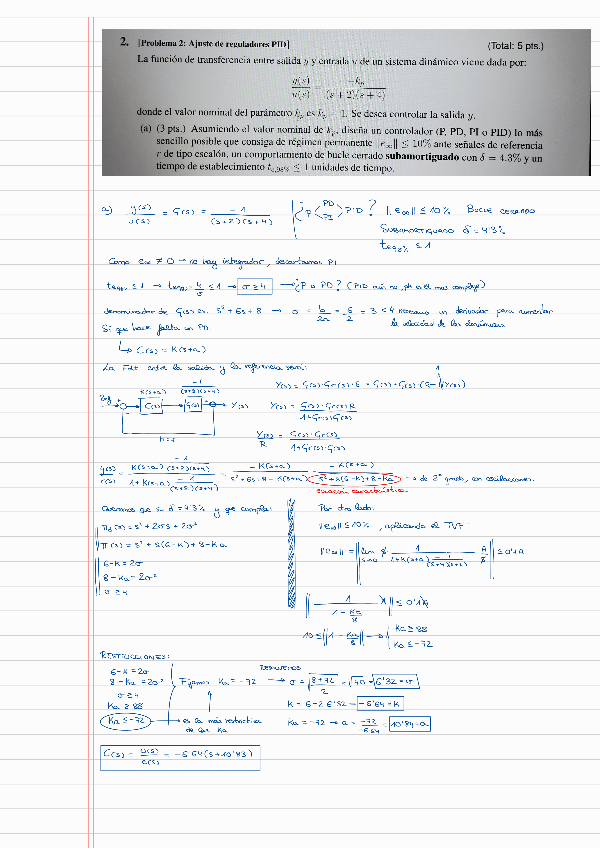 2. [Problema 2: Ajuste de reguladores PID] (Total: 5 pts.)
La función de transferencia entre salida y y entrada v de un sistema dinámico viene dada por:
y(s)/v(s) = -kp/((s+2)(s+4))
donde el valor nominal del parámetro kp es kp = 1. Se desea controlar la salida y.
(a) (3 pts.) Asumiendo el valor nominal de kp, diseña un controlador (P, PD, PI o PID) lo más
sencillo posible que consiga de régimen permanente ||e∞|| ≤ 10% ante señales de referencia
r de tipo escalón, un comportamiento de bucle cerrado subamortiguado con δ = 4.3% y un
tiempo de establecimiento te,98% ≤ 1 unidades de tiempo.
a) y(s)/v(s) = G(s) = -1/((s+2)(s+4)) ¿P PD PI PID? ||e∞|| ≤ 10% BUCLE CERRADO
SUBAMORTIGUADO δ = 4'3%
te98% ≤ 1
Como e∞ ≠ 0 → no hay integrador, descartamos PI
te98% ≤ 1 → te98% = 4/σ ≤ 1 → σ ≥ 4 → ¿P o PD? (PID aún no, ya que es el más complejo)
denominador de G(s) es: s² + 6s + 8 → σ = b/2a = 6/2 = 3 ≤ 4 necesito un derivador para aumentar
la velocidad de los
Sí que hace falta un PD.
↳ C(s) = K(s+a)
La Fdt entre la salida y la referencia será:
K(s+a) -1/((s+2)(s+4))
Ref C(s) G(s) Y(s)
h=1
Y(s) = G(s)·Gr(s)·E = G(s)·Gr(s)(R - Y(s))
Y(s) = G(s)·Gr(s)R/(1+Gr(s)G(s))
Y(s)/R = G(s)·Gr(s)/(1+Gr(s)·G(s))
y(s)/r(s) = K(s+a) -1/((s+2)(s+4)) / (1 + K(s+a) -1/((s+2)(s+4))) = -K(s+a)/(s²+6s+8-K(s+a)) = -K(s+a)/(s²+s(6-K)+8-Ka) → de 2º grado, con oscilaciones.
ecuación característica.
Queremos que su δ = 4'3% y que cumpla:
Πd(s) = s² + 2σs + 2σ²
Π(s) = s² + s(6-K) + 8-Ka
6-K = 2σ
8-Ka = 2σ²
σ ≥ 4
Por otro lado:
||e∞|| ≤ 10%, aplicando el TVF:
||e∞|| = ||lim s→0 s · 1/(1+K(s+a) -1/((s+4)(s+2))) · A/s|| ≤ 0'1A
||1/(1 - Ka/8) A|| ≤ 0'1A
10 ≤ ||1 - Ka/8|| → Ka ≥ 88
Ka ≤ -72
RESTRICCIONES:
6-K = 2σ
8-Ka = 2σ²
σ ≥ 4
Ka ≥ 88
Ka ≤ -72
Fijamos Ka = -72
es la más restrictiva
de las Ka
RESOLVEMOS
→ σ = √((8+72)/2) = √40 = 6'32 = σ
K = 6-2·6'32 = -6'64 = K
Ka = -72 → a = -72/-6'64 = 10'84 = a
C(s) = u(s)/e(s) = -6'64(s+10'83)